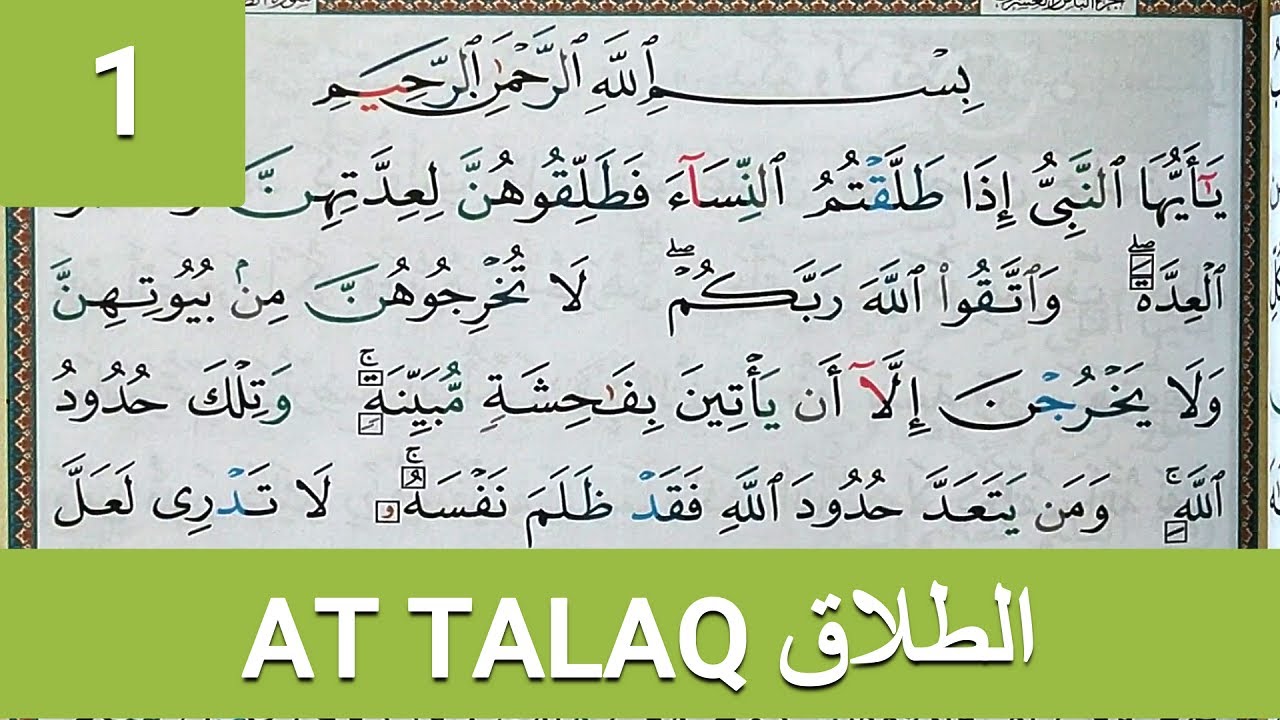 1
بِسْمِ ٱللَّهِ ٱلرَّحْمَٰنِ ٱلرَّحِيمِ
يَٰٓأَيُّهَا ٱلنَّبِىُّ إِذَا طَلَّقْتُمُ ٱلنِّسَآءَ فَطَلِّقُوهُنَّ لِعِدَّتِهِنَّ
ٱلْعِدَّةَ ۖ وَٱتَّقُوا۟ ٱللَّهَ رَبَّكُمْ ۖ لَا تُخْرِجُوهُنَّ مِنۢ بُيُوتِهِنَّ
وَلَا يَخْرُجْنَ إِلَّآ أَن يَأْتِينَ بِفَٰحِشَةٍ مُّبَيِّنَةٍ ۚ وَتِلْكَ حُدُودُ
ٱللَّهِ ۚ وَمَن يَتَعَدَّ حُدُودَ ٱللَّهِ فَقَدْ ظَلَمَ نَفْسَهُۥ ۚ لَا تَدْرِى لَعَلَّ
AT TALAQ الطلاق